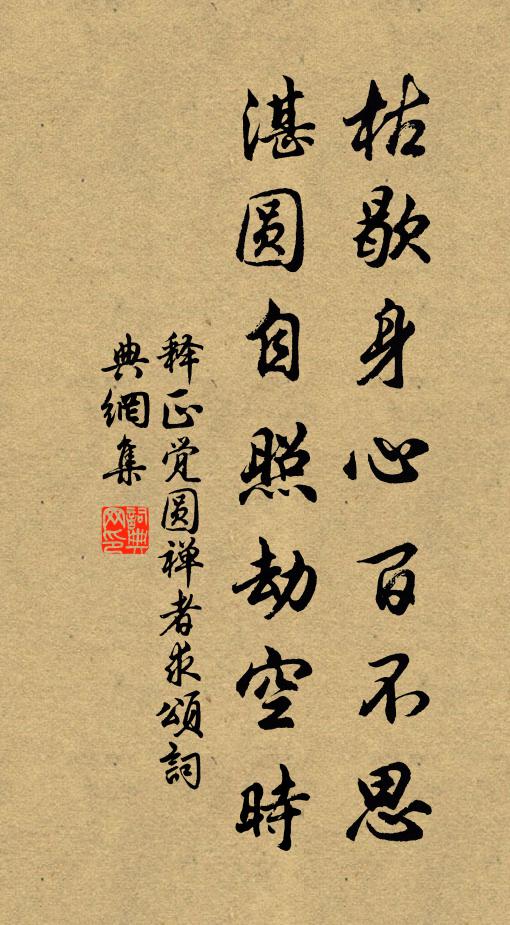 枯歇身心百不思
湛圆自照劫空時
释正觉圆禅者求頌詞
典網集
詞典
网印